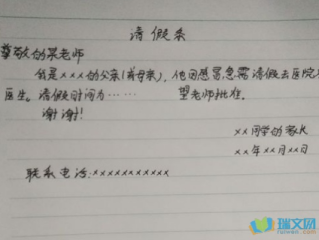 请假条
尊敬的某老师
我是×××的父亲(或母亲),他因感冒急需请假去医院
医生。请假时间为…… 望老师批准。
谢谢!
××同学的家长
××年××月××日
联系电话:×××××××××××
瑞文网